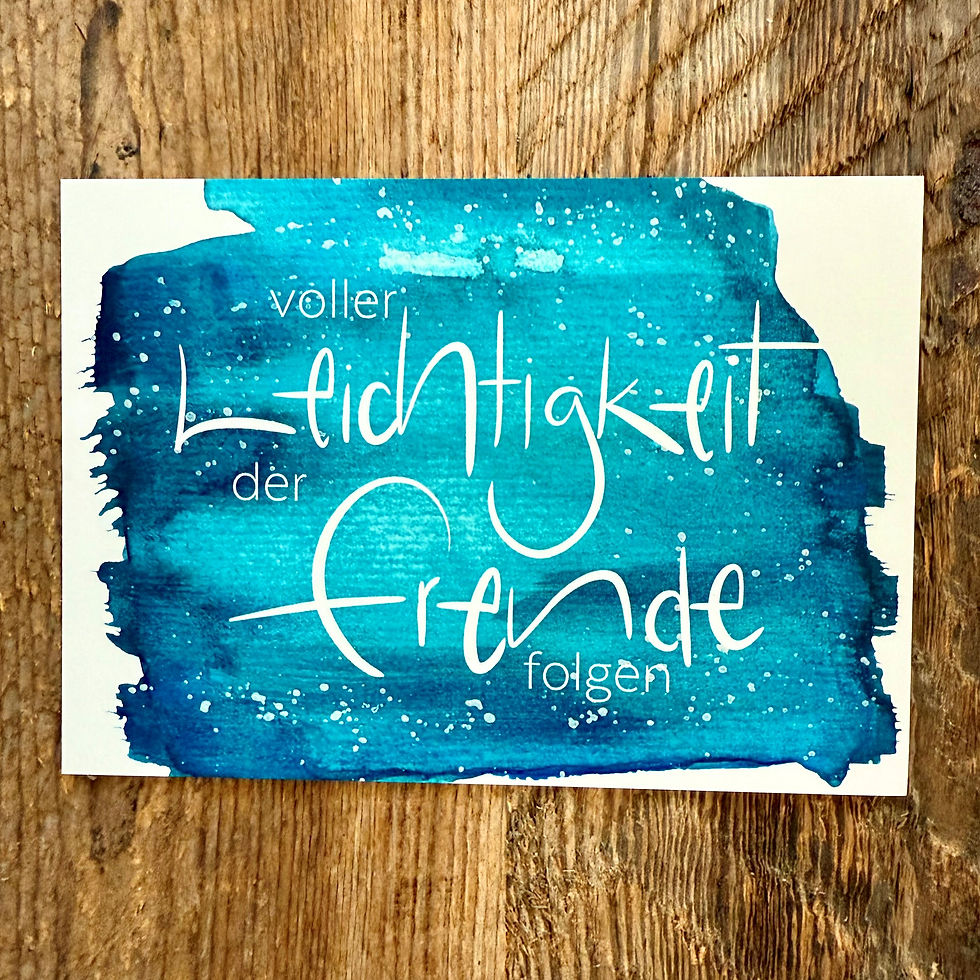 voller
Leichtigkeit
der
Freude
folgen